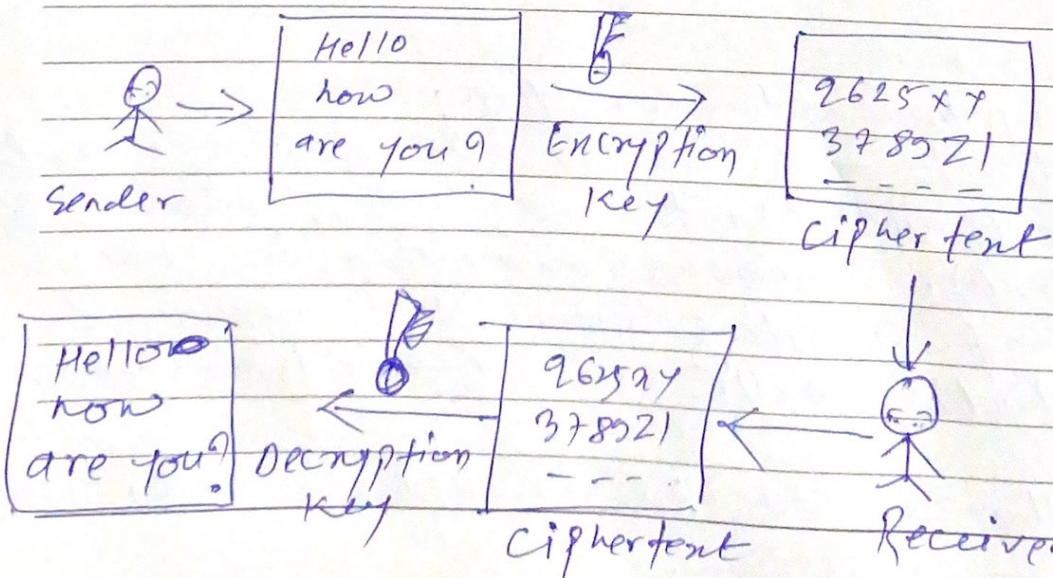 Hello
how
are you?
Sender
Encryption
Key
9625xy
378921
- - - -
Ciphertext
Hello
how
are you?
Decryption
Key
9625xy
378921
- - - .
Ciphertext
Receive